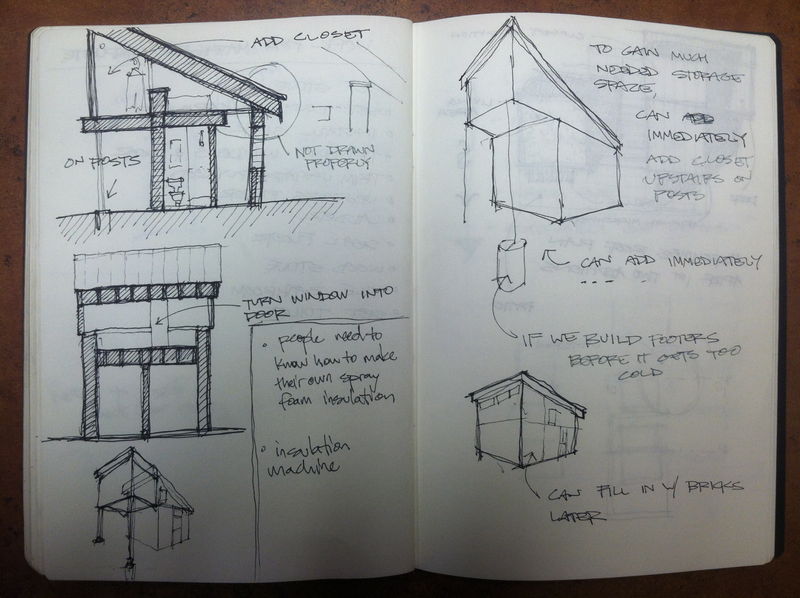 ADD CLOSET
ON POSTS
NOT DRAWN
PROPERLY
TURN WINDOW INTO
DOOR
• people need to
know how to make
their own spray
foam insulation
• insulation
machine
TO GAIN MUCH
NEEDED STORAGE
SPACE,
CAN ADD
IMMEDIATELY
ADD CLOSET
UPSTAIRS ON
POSTS
CAN ADD IMMEDIATELY
IF WE BUILD FOOTERS
BEFORE IT GETS TOO
COLD
CAN FILL IN W/ BRICKS
LATER